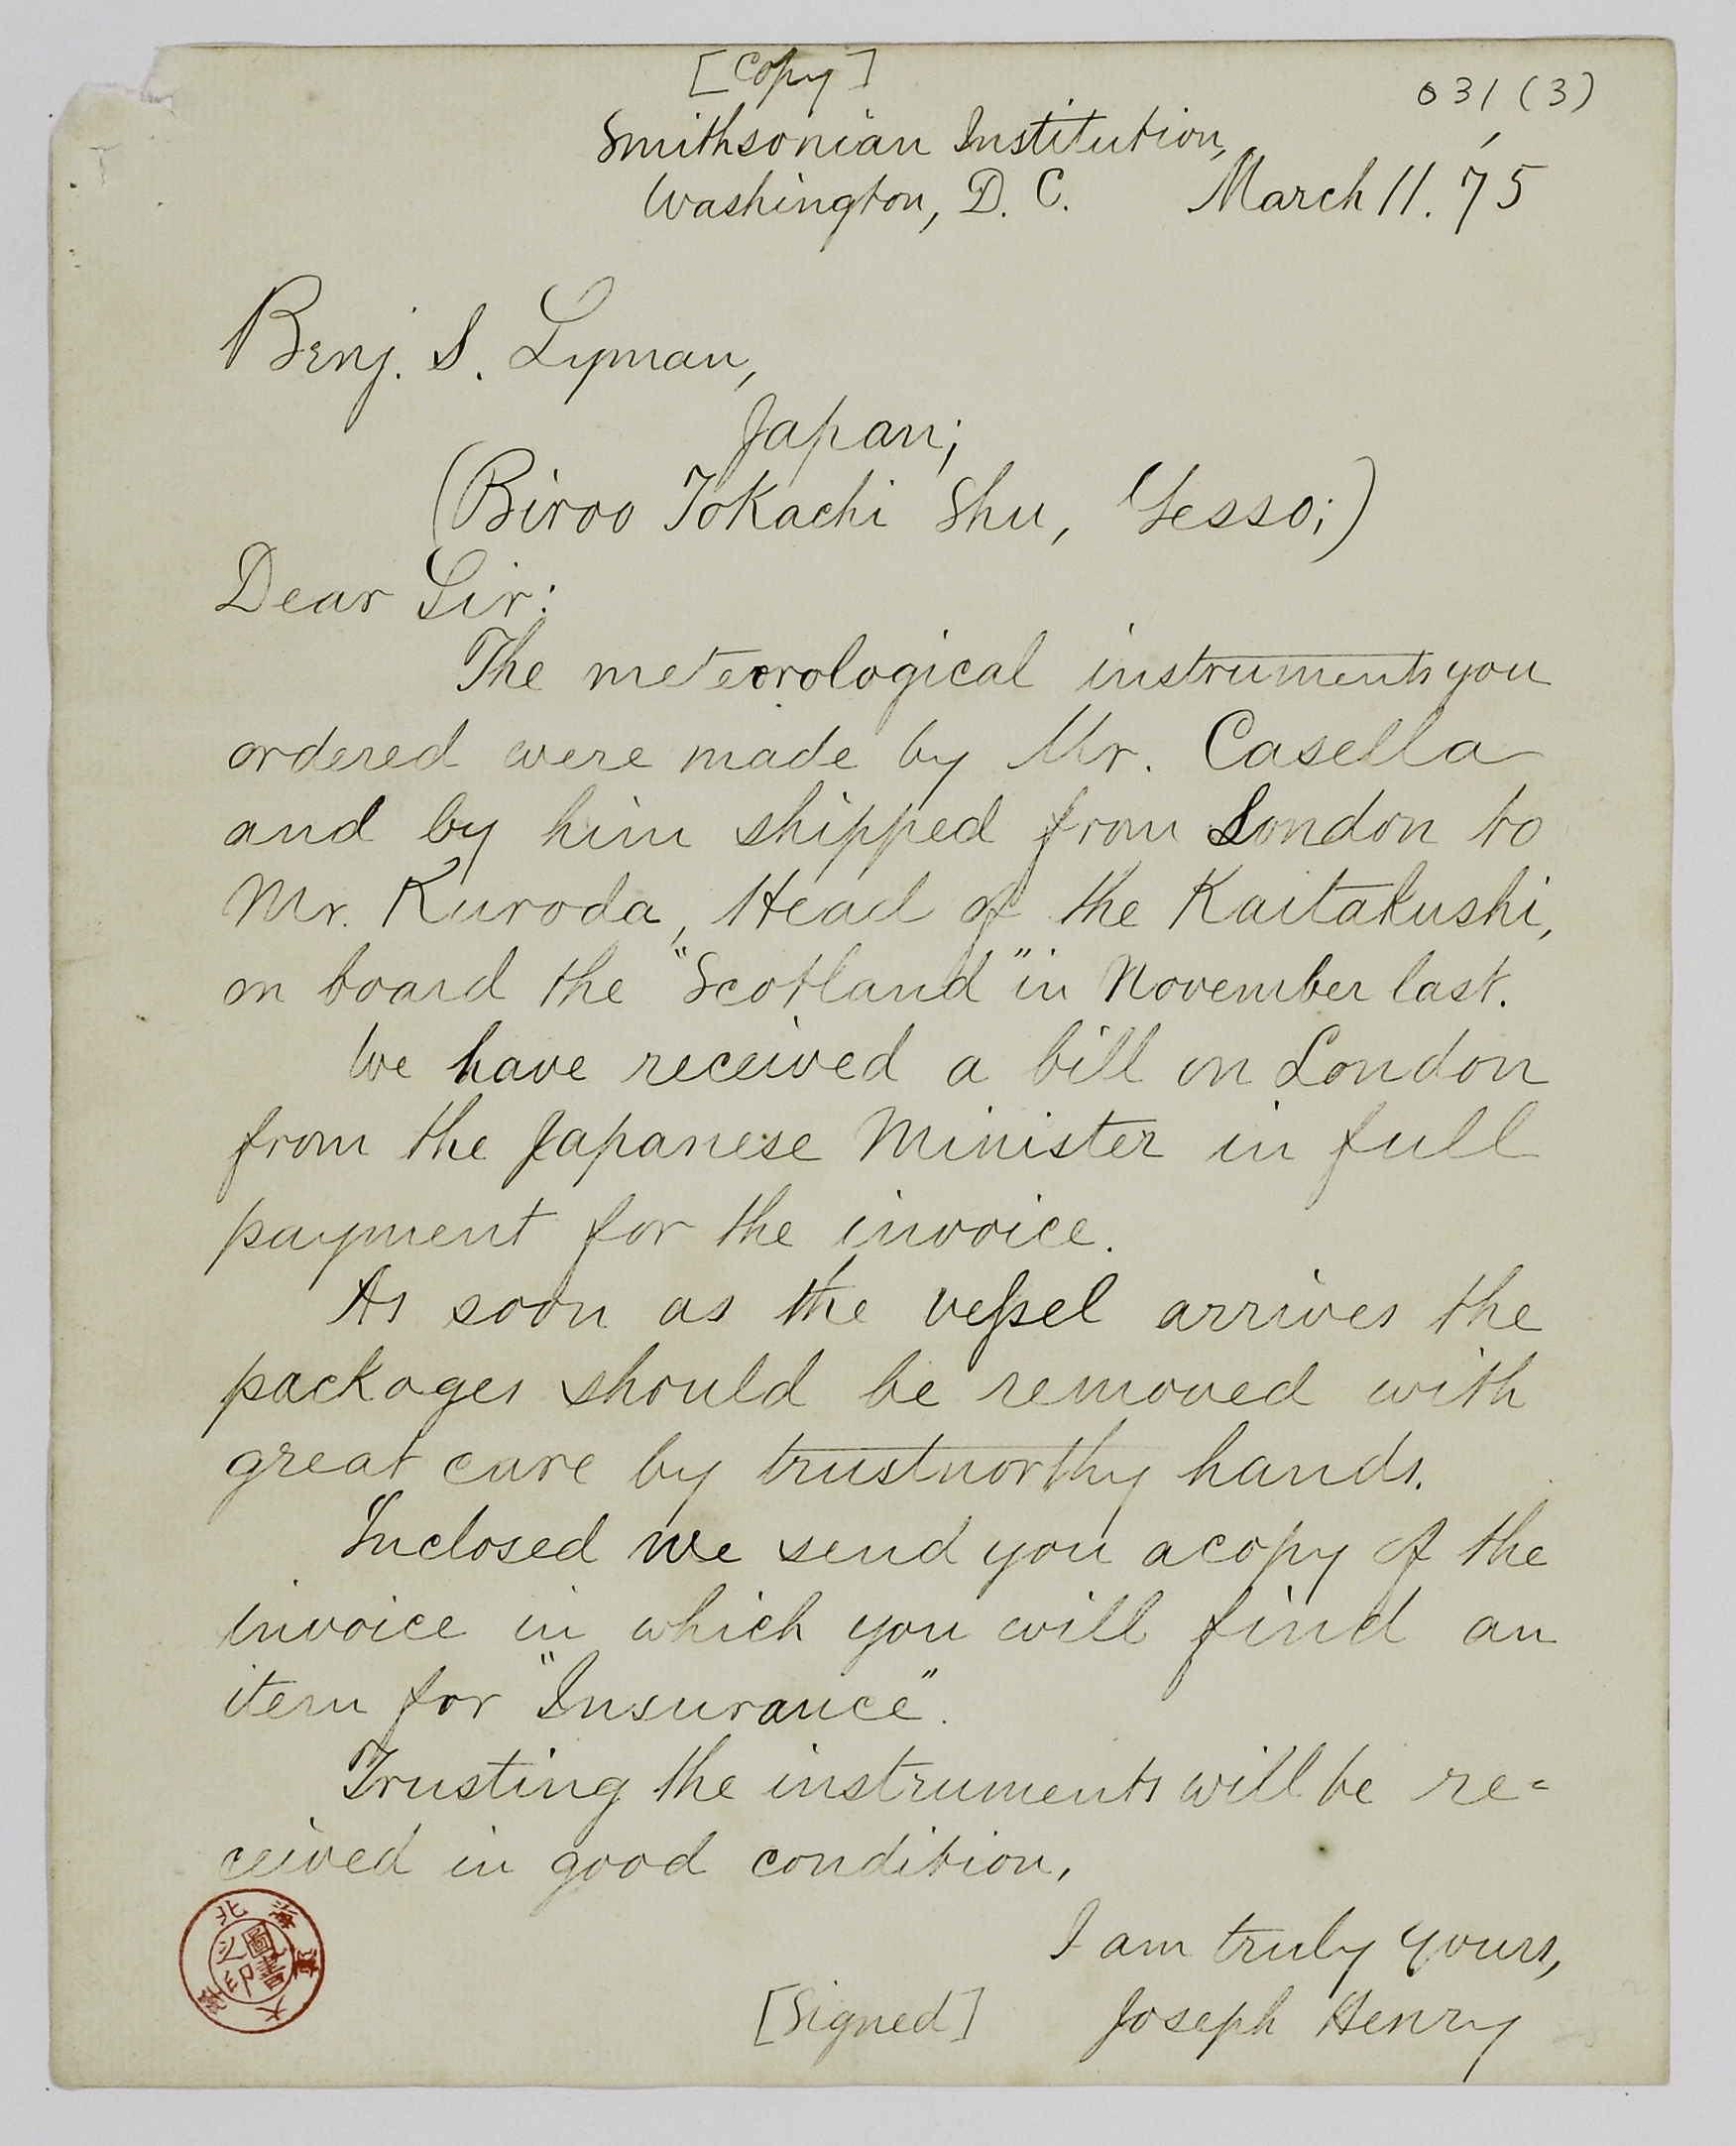 [Copy]
031 (3)
Smithsonian Institution,
Washington, D. C. March 11. '75
Benj. S. Lyman,
Japan;
(Biroo Tokachi Shu, Yesso;)
Dear Sir:
The meteorological instruments you
ordered were made by Mr. Casella
and by him shipped from London to
Mr. Kuroda, Head of the Kaitakushi,
on board the "Scotland" in November last.
We have received a bill on London
from the Japanese Minister in full
payment for the invoice.
As soon as the vessel arrives the
packages should be removed with
great care by trustworthy hands.
Inclosed we send you a copy of the
invoice in which you will find an
item for "Insurance".
Trusting the instruments will be re=
ceived in good condition,
I am truly yours,
[Signed] Joseph Henry
北海道大學
圖書之印